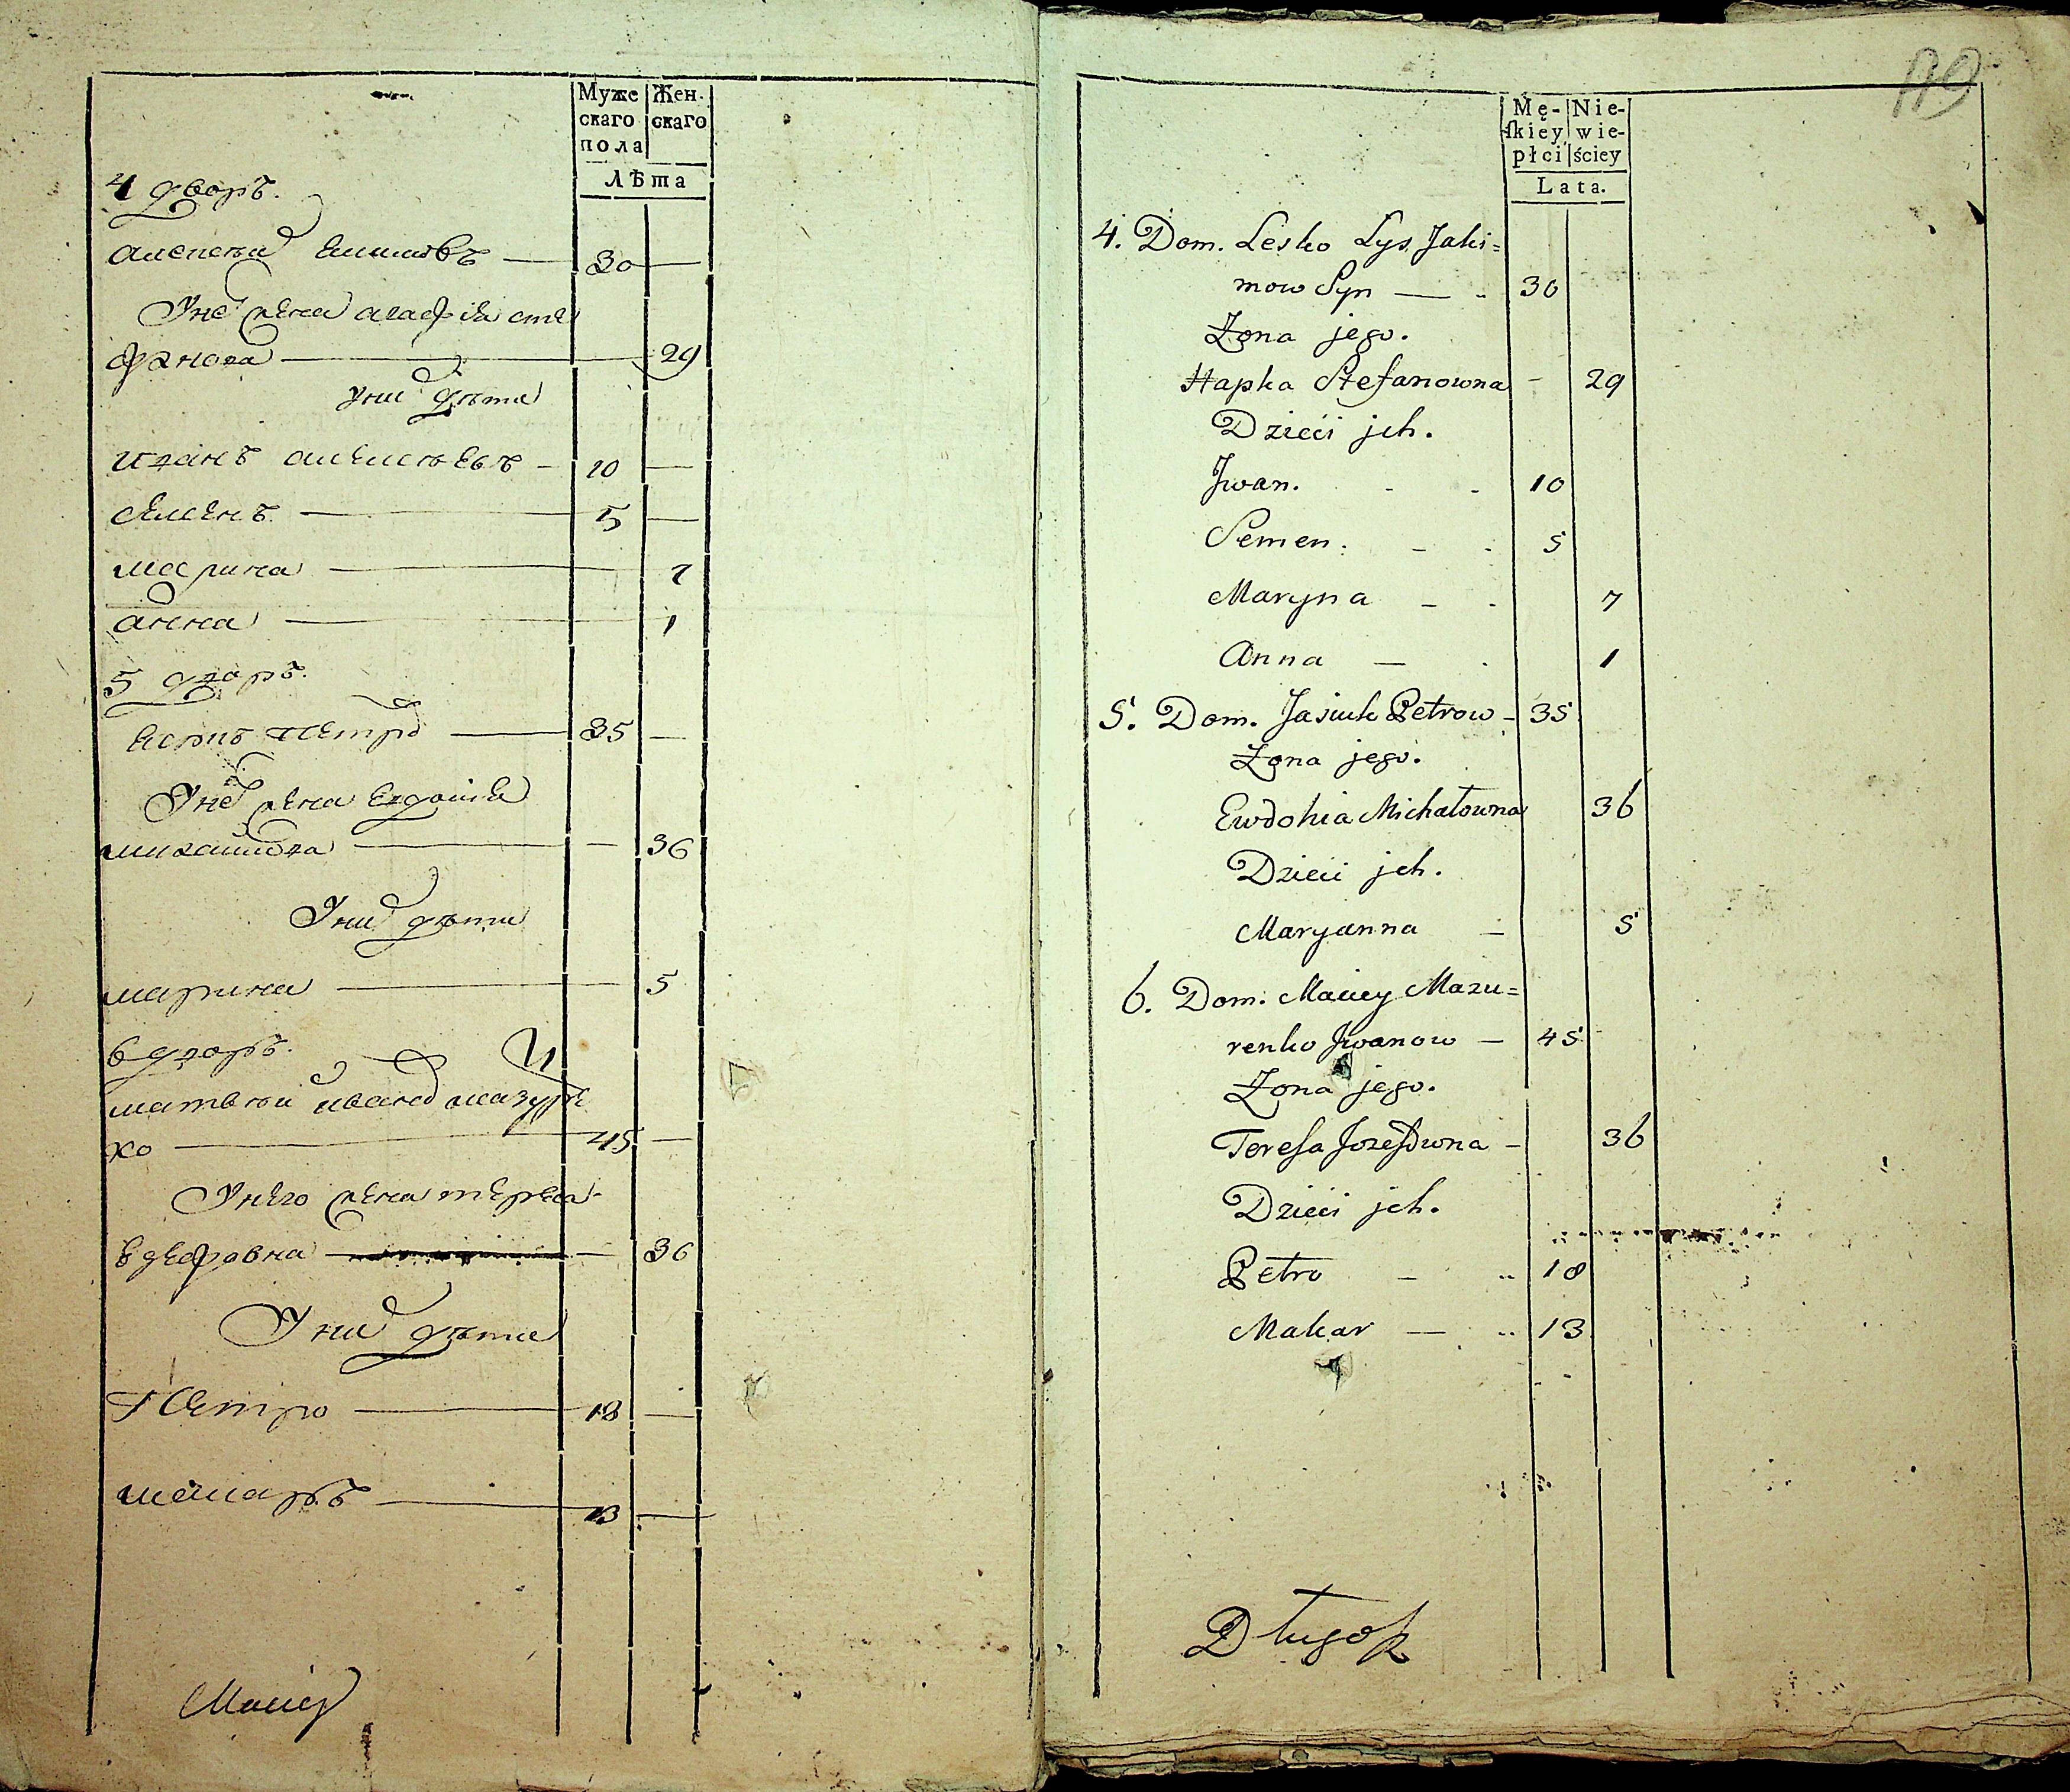 Муже Жен.
скаго скаго
пола
Лѣта
4 дворъ.
алексѣй екимовъ — 30 —
У не жена агафiя сте
фанова — 29
У ни дѣти
иванъ алексѣевъ — 10 —
семенъ — 5 —
марина — 7
анна — 1
5 дворъ.
есипъ петро — 35 —
У не жена евдокiя
михайлова — 36
У ни дѣти
марина — 5
6 дворъ.
матвѣй ивано мазуре
хо — 45 —
У него жена тереса
— 36
У ни дѣти
Петро — 18 —
макаръ — 13 —
Maciey
119
Mę- Nie-
ſkiey wie-
płci ściey
Lata.
4. Dom. Lesko Lys. Jaki=
mow Syn — 30
Zona jego.
Hapka Stefanowna - 29
Dzieci jch.
Jwan. - - 10
Semen. - - 5
Maryna - - 7
Anna — 1
5. Dom. Jasiuk Petrow - 35
Zona jego.
Ewdokia Michałowna 36
Dzieci jch.
Maryanna — 5
6. Dom. Maciey Mazu=
renko Jwanow — 45
Zona jego.
Tereſa Jozefowna - 36
Dzieci jch.
Petro - 18
Makar — 13